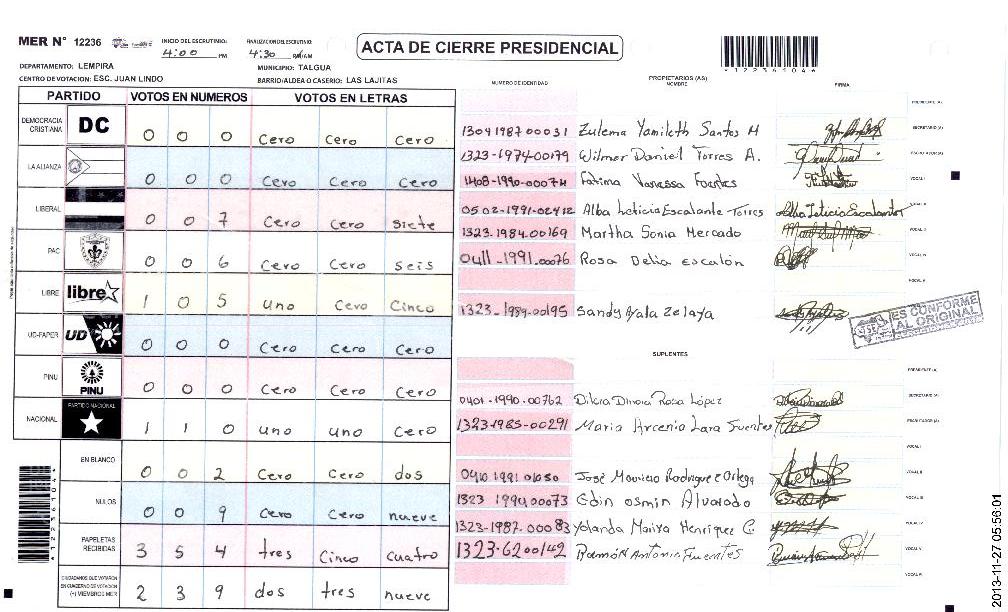 MER N° 12236
INICIO DEL ESCRUTINIO:
4:00 PM
FINALIZACION DEL ESCRUTINIO:
4:30 PM/AM
ACTA DE CIERRE PRESIDENCIAL
*12236104*
DEPARTAMENTO: LEMPIRA
MUNICIPIO: TALGUA
CENTRO DE VOTACION: ESC. JUAN LINDO
BARRIO/ALDEA O CASERIO: LAS LAJITAS
NUMERO DE IDENTIDAD
PROPIETARIOS (AS)
NOMBRE
FIRMA
PARTIDO VOTOS EN NUMEROS VOTOS EN LETRAS
DEMOCRACIA CRISTIANA DC 0 0 0 Cero Cero Cero
LA ALIANZA 0 0 0 Cero Cero Cero
LIBERAL 0 0 7 Cero Cero Siete
PAC 0 0 6 Cero Cero seis
LIBRE libre 1 0 5 uno Cero Cinco
UD-FAPER UD 0 0 0 Cero Cero Cero
PINU PINU 0 0 0 Cero Cero Cero
NACIONAL PARTIDO NACIONAL 1 1 0 uno uno Cero
EN BLANCO 0 0 2 Cero Cero dos
NULOS 0 0 9 Cero Cero nueve
PAPELETAS RECIBIDAS 3 5 4 tres Cinco cuatro
CIUDADANOS QUE VOTARON EN CUADERNO DE VOTACION (+) MIEMBROS MER 2 3 9 dos tres nueve
PRESIDENTE (A)
1304198700031 Zulema Yamileth Santos M SECRETARIO (A)
1323-1974-00179 Wilmer Daniel Torres A. ESCRUTADOR (A)
1408-1990-00074 Fatima Vanessa Fuentes VOCAL I
0502-1991-02412 Alba Leticia Escalante Torres Alba Leticia Escalante VOCAL II
1323.1984.00169 Martha Sonia Mercado VOCAL III
0411-1991.00076 Rosa Delia Escalón VOCAL IV
VOCAL V
1323-1989-00195 Sandy Ayala Zelaya
ES CONFORME AL ORIGINAL
SUPLENTES
PRESIDENTE (A)
0401-1990-00762 Dilcia Rosa López SECRETARIO (A)
1323-1985-00291 Maria Arcenia Lara Fuentes ESCRUTADOR (A)
VOCAL I
0410 1991 01050 José Mauricio Rodriguez Ortega VOCAL II
1323 1994 00073 Edin Osmin Alvarado VOCAL III
1323-1987-00083 Yolanda Marixa Henriquez C. VOCAL IV
1323-6200142 Ramón Antonio Fuentes VOCAL V
VOCAL VI
*12236104*
2013-11-27 05:56:01